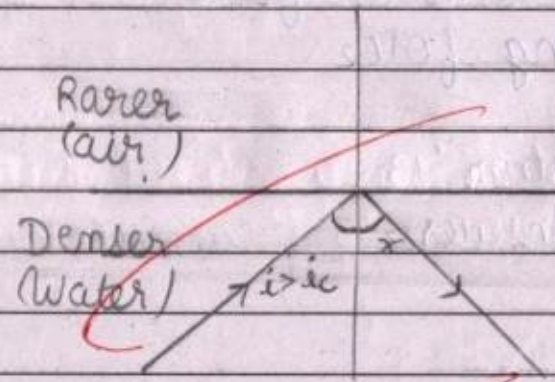 Rarer
(air)
Denser
(Water)
i>ic
r